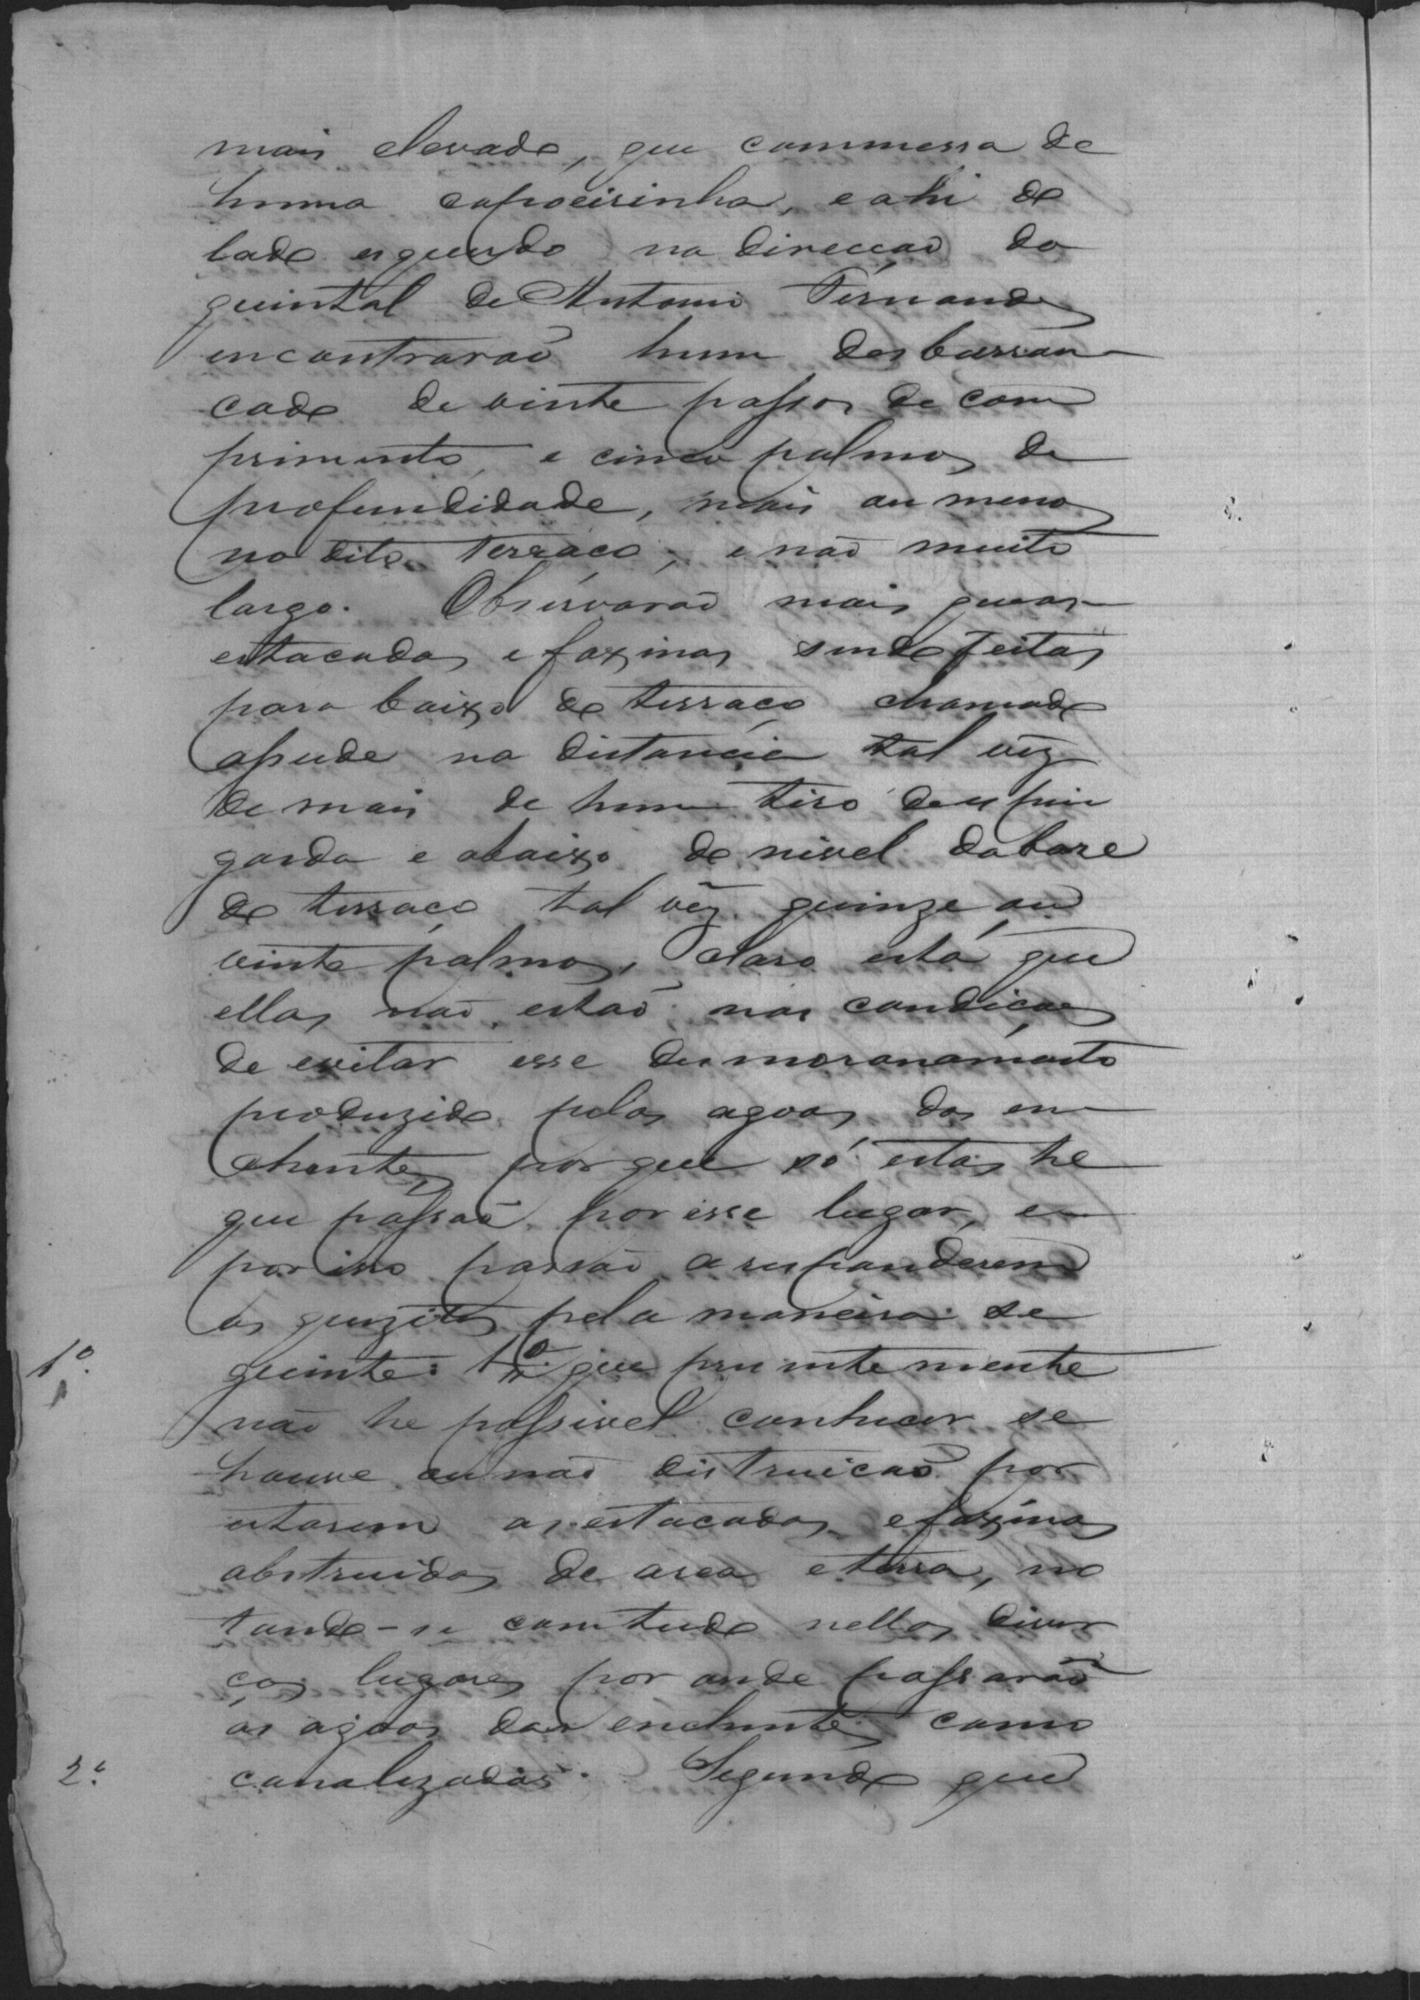 mais elevado, que commessa de
huma capoeirinha, e ahi do
lado esquerdo na direcção do
quintal de Antonio Fernandes
encontrarão hum desbarran-
cado de vinte passos de com
primento, e cinco palmos de
profundidade, mais ou menos
no dito terraço, e não muito
largo. Observarão mais que as
estacadas e faxinas sendo feitas
para baixo do terraço chamado
assude na distancia tal vez
de mais de hum tiro de espin
garda e abaixo do nivel da base
do terraço tal vez quinze ou
vinte palmos, claro está que
ellas não estão nas condições
de evitar esse desmoronamento
produzido pelas agoas das en-
chentes, porque só estas he
que passão por esse lugar, e
por isso passão a responderem
os quezitos pela maneira se
1º.
guinte: 1º que prezentemente
não he possivel conhecer se
houve ou não distruição por
estarem as estacadas e faxinas
abstruidas de area e terra, no
tando-se comtudo nellas diver
ços lugares por onde passarão
as agoas das enchentes como
2º.
canalizadas. Segundo que